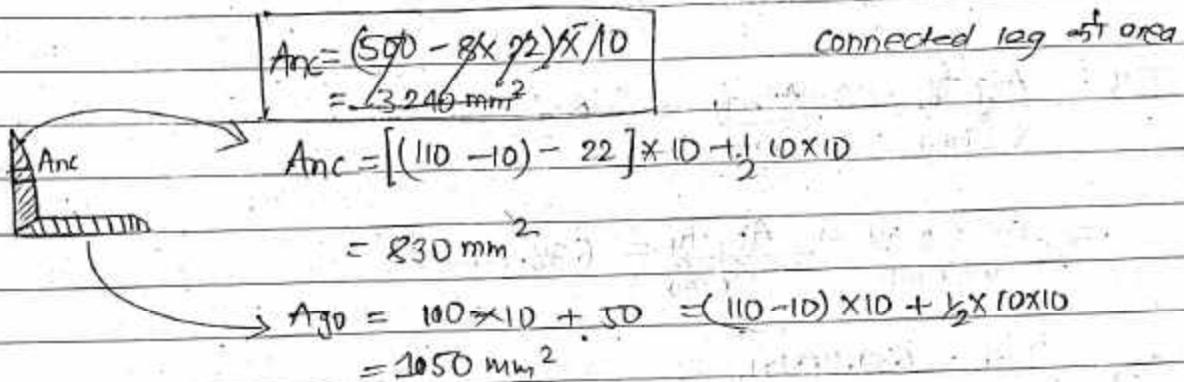 Anc = (500 - 8 x 22) x 10
= 3240 mm²
connected leg net area
Anc
Anc = [(110 - 10) - 22] x 10 + ½ 10 x 10
= 830 mm²
Ago = 100 x 10 + 50 = (110 - 10) x 10 + ½ x 10 x 10
= 1050 mm²